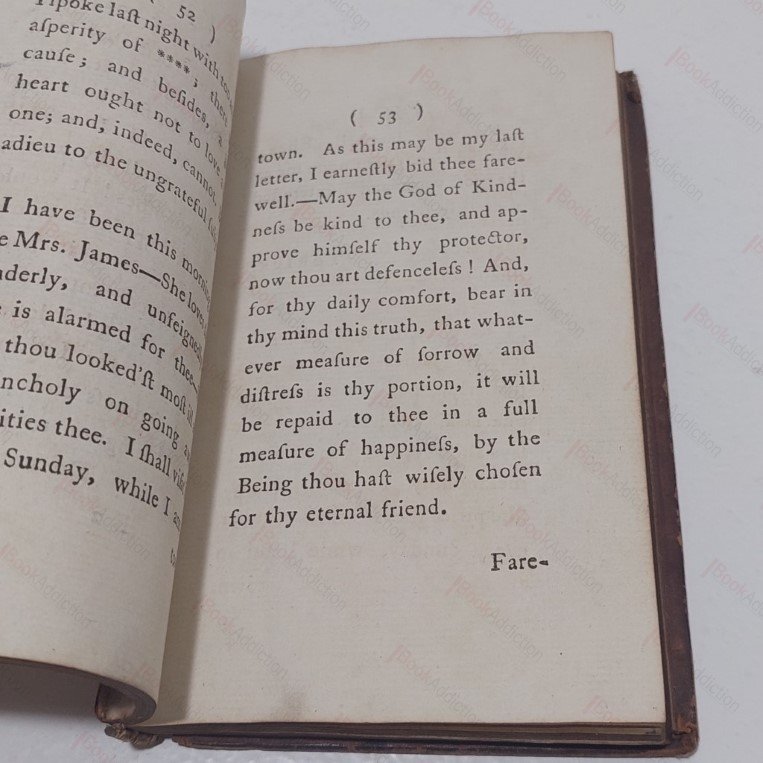 ( 52 )
ſpoke laſt night with
aſperity of ****;
cauſe; and beſides, a
heart ought not to love
one; and, indeed, cannot.
adieu to the ungrateful
I have been this morning
Mrs. James—She loves
and unfeigned
is alarmed for thee
thou looked'ſt moſt
on going
ities thee. I ſhall viſit
Sunday, while I am
( 53 )
town. As this may be my laſt
letter, I earneſtly bid thee fare-
well.—May the God of Kind-
neſs be kind to thee, and ap-
prove himſelf thy protector,
now thou art defenceleſs! And,
for thy daily comfort, bear in
thy mind this truth, that what-
ever meaſure of ſorrow and
diſtreſs is thy portion, it will
be repaid to thee in a full
meaſure of happineſs, by the
Being thou haſt wiſely choſen
for thy eternal friend.
Fare-
BookAddiction